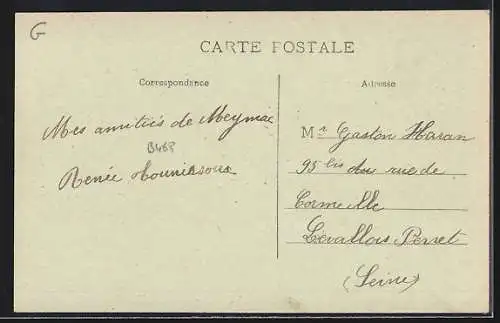 G
CARTE POSTALE
Correspondance
Mes amitiés de Meymac
B468
Renée
Adresse
Mr Gaston Haran
95 bis rue de
Cormeille
Levallois Perret
(Seine)